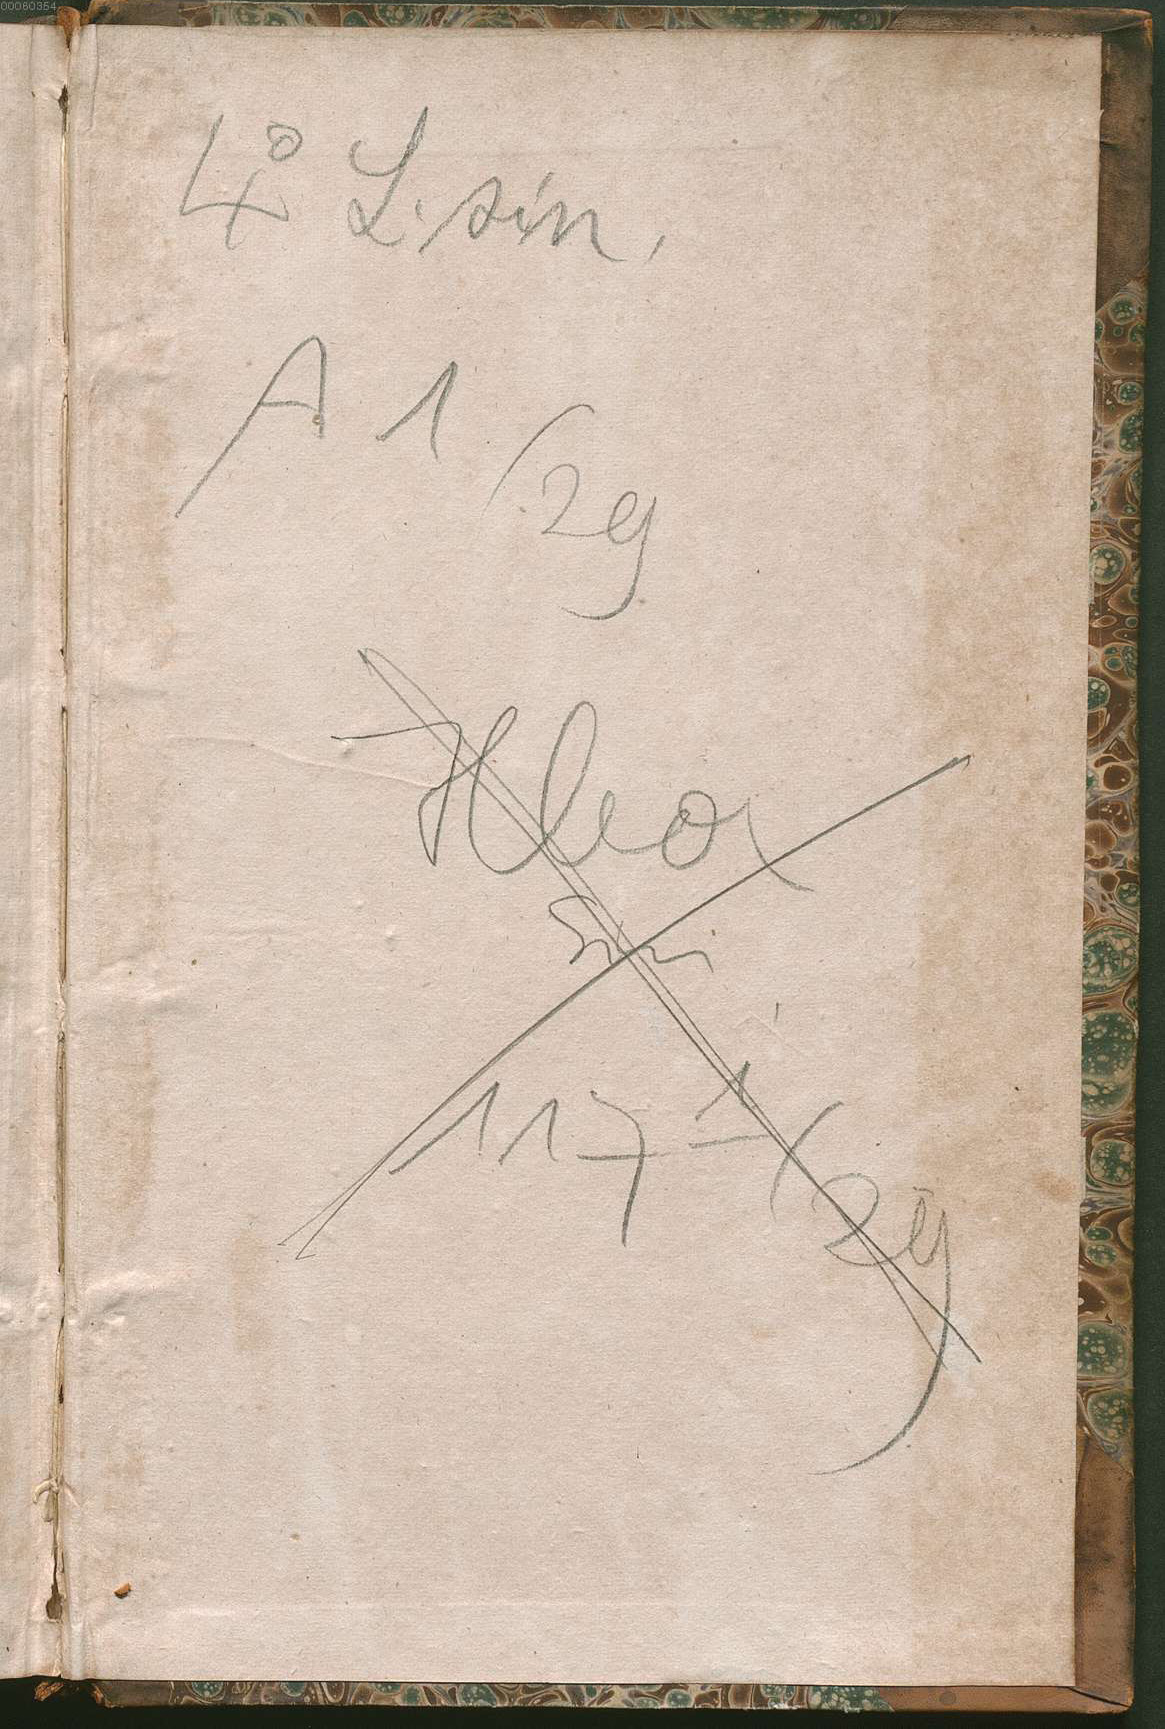 00060354
4° L. sin.
A 1 /2g
Sin
117-1/2g